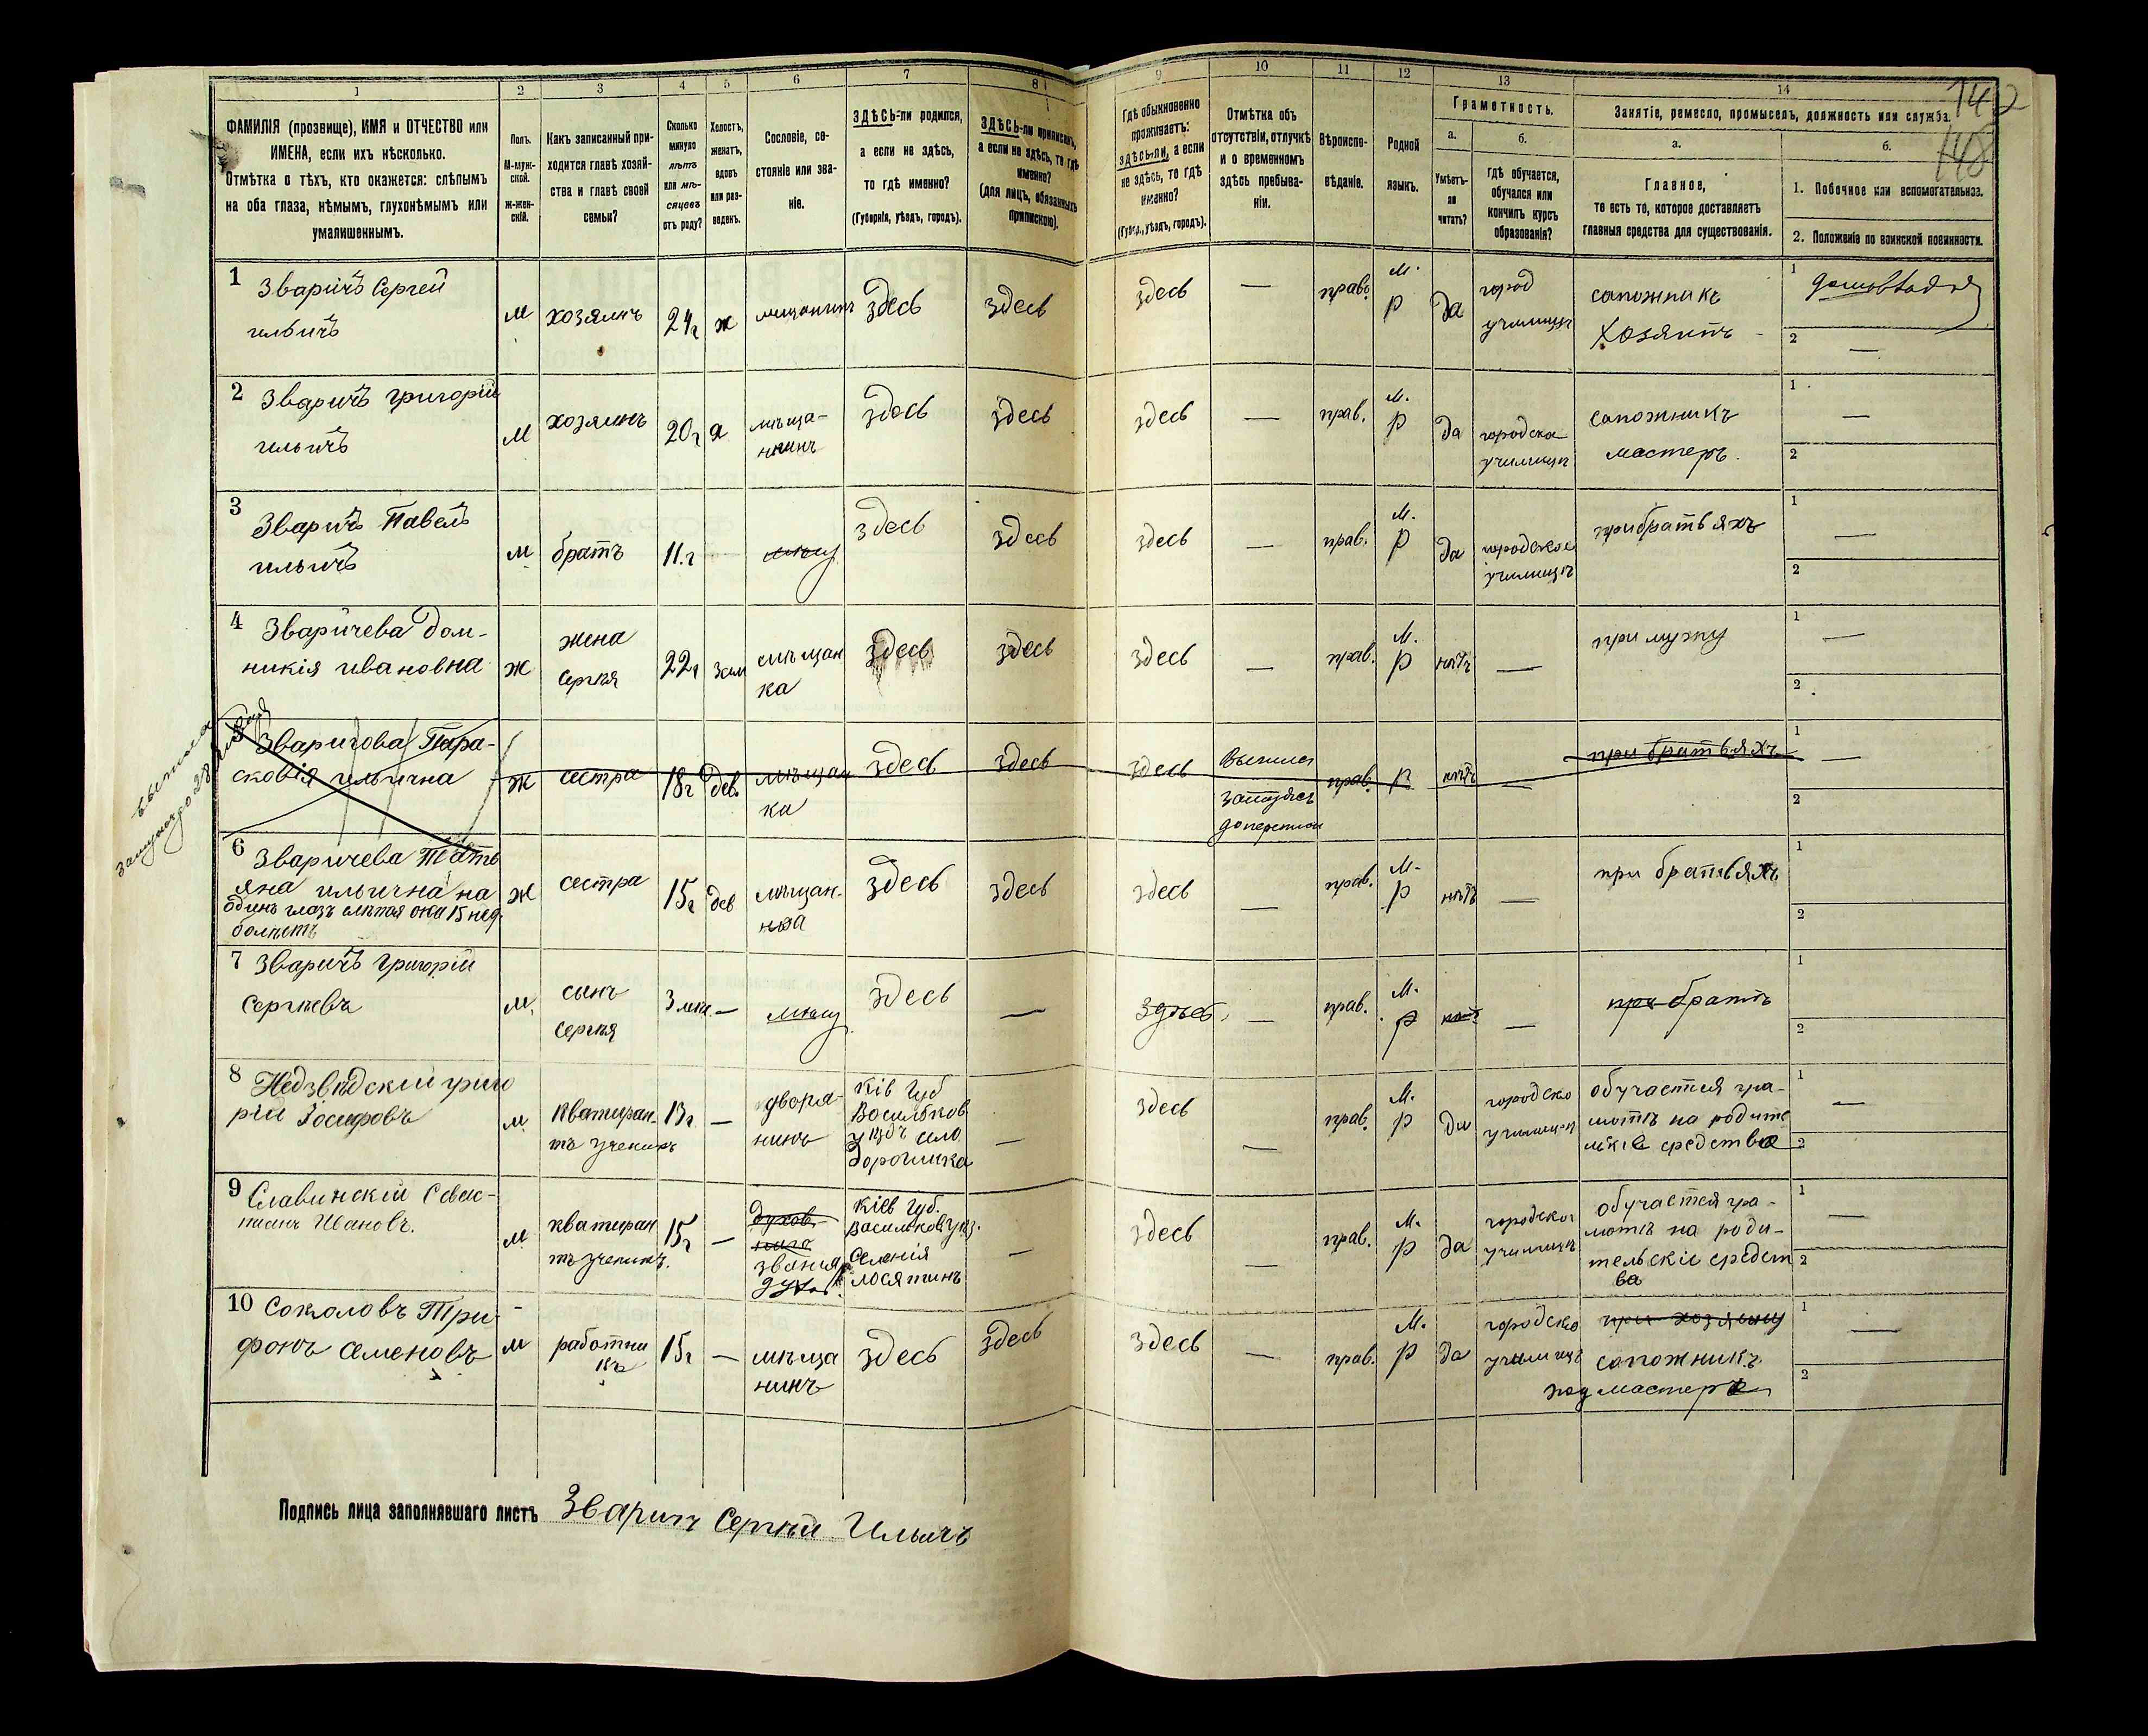 1 2 3 4 5 6 7 8 9 10 11 12 13 14
142
148
ФАМИЛІЯ (прозвище), ИМЯ и ОТЧЕСТВО или
ИМЕНА, если ихъ нѣсколько.
Отмѣтка о тѣхъ, кто окажется: слѣпымъ
на оба глаза, нѣмымъ, глухонѣмымъ или
умалишеннымъ.
Полъ.
М-муж-
ской.
ж-жен-
скій.
Какъ записанный при-
ходится главѣ хозяй-
ства и главѣ своей
семьи?
Сколько
минуло
лѣтъ
или мѣ-
сяцевъ
отъ роду?
Холостъ,
женатъ,
вдовъ
или раз-
веденъ.
Сословіе, со-
стояніе или зва-
ніе.
ЗДѢСЬ-ли родился,
а если не здѣсь,
то гдѣ именно?
(Губернія, уѣздъ, городъ).
ЗДѢСЬ-ли приписанъ,
а если не здѣсь, то гдѣ
именно?
(для лицъ, обязанныхъ
припискою).
Гдѣ обыкновенно
проживаетъ:
здѣсь-ли, а если
не здѣсь, то гдѣ
именно?
(Губер., уѣздъ, городъ).
Отмѣтка объ
отсутствіи, отлучкѣ
и о временномъ
здѣсь пребыва-
ніи.
Вѣроиспо-
вѣданіе.
Родной
языкъ.
Грамотность.
а.
Умѣетъ-
ли
читать?
б.
гдѣ обучается,
обучался или
кончилъ курсъ
образованія?
Занятіе, ремесло, промыселъ, должность или служба.
а.
Главное,
то есть то, которое доставляетъ
главныя средства для существованія.
б.
1. Побочное или вспомогательное.
2. Положеніе по воинской повинности.
1 Зваричъ Сергей
ильичъ
м хозяинъ 24г ж мещанинъ здесь здесь здесь — прав. м. р да
город
училище
сапожникъ
хозяинъ
1
2 —
2 Зваричъ григорій
ильичъ
м хозяинъ 20г
мѣща-
нинъ
здесь здесь здесь — прав. м. р да
городско
училище
сапожникъ
мастеръ.
1 —
2
3 Зваричъ Павелъ
ильичъ
м братъ 11.г здесь здесь здесь — прав. м. р да
городское
училище
при братьяхъ
1 —
2
4 Зваричева Дом-
никія ивановна
ж
жена
Сергѣя
22г зам
мѣщан
ка
здесь здесь здесь — прав. м. р нѣтъ — при мужу
1 —
2
5 Зваричова Пара-
сковія ильична
ж сестра 18г дев.
мѣщан
ка
здесь здесь здесь
прав. р нѣтъ — при братьяхъ
1 —
2
6 Зваричева Тать
яна ильична на
одинъ глазъ слѣпая она 15 нед.
болѣетъ
ж сестра 15г дев
мѣщан-
здесь здесь здесь — прав. м. р нѣтъ — при братьяхъ
1
2
7 Зваричъ григорій
Сергѣевъ
м.
сынъ
Сергѣя
3 мес. — здесь — здѣсь — прав. м. р — при братѣ
1
2
8 Недзвѣдскій григо
рій Іосифовъ
м.
кватиран-
тъ ученикъ
13г. —
дворя-
нинъ
Кіев губ
Васильков
уѣздъ село
— здесь — прав. м. р да
городско
училище
обучается гра-
мотѣ на родите
льскіе средства
1 —
2
9 Славинскій Севас-
тианъ Ивановъ.
м
кватиран
тъ ученикъ.
15г —
духов-
наго
званія
духов.
Кіев губ.
Васильков уѣз.
Селенія
лосятинъ
— здесь — прав. м. р да
городско
училище
обучается гра-
мотѣ на роди-
тельскіе средст
ва
1 —
2
10 Соколовъ Три-
фонъ Семеновъ
м
работни
къ
15г —
мѣща
нинъ
здесь здесь здесь — прав. м. р да
городско
училище
при хозяину
сапожникъ
подмастеръ
1 —
2
Подпись лица заполнявшаго листъ Зваричъ Сергѣй Ильичъ